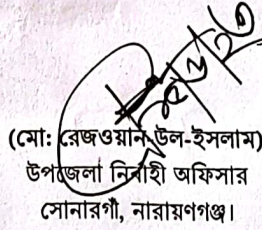 (মো: রেজওয়ান উল-ইসলাম)
উপজেলা নির্বাহী অফিসার
সোনারগাঁ, নারায়ণগঞ্জ।